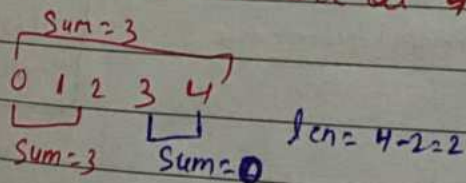 Sum = 3
0 1 2 3 4
Sum = 3 Sum = 0 len = 4-2=2